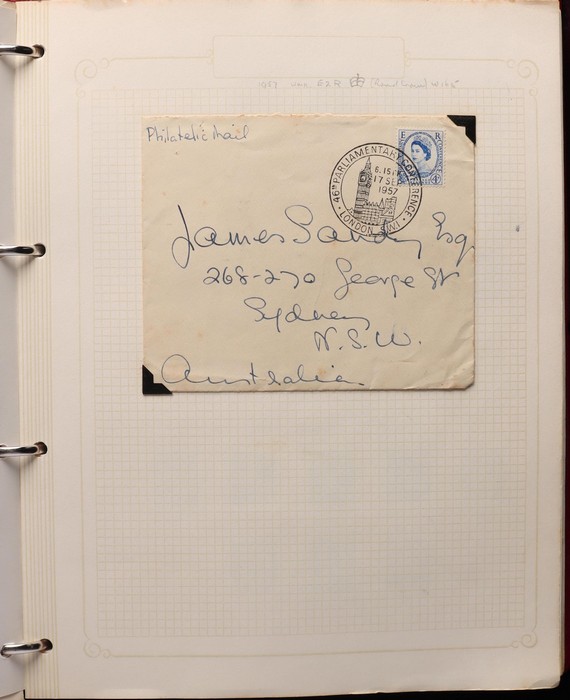 1957
Philatelic Mail
E R
46TH PARLIAMENTARY CONFERENCE
6.15 PM
17 SEP
1957
LONDON S.W.1
James Sandy Esq
268-270 George St
Sydney
N.S.W.
Australia.